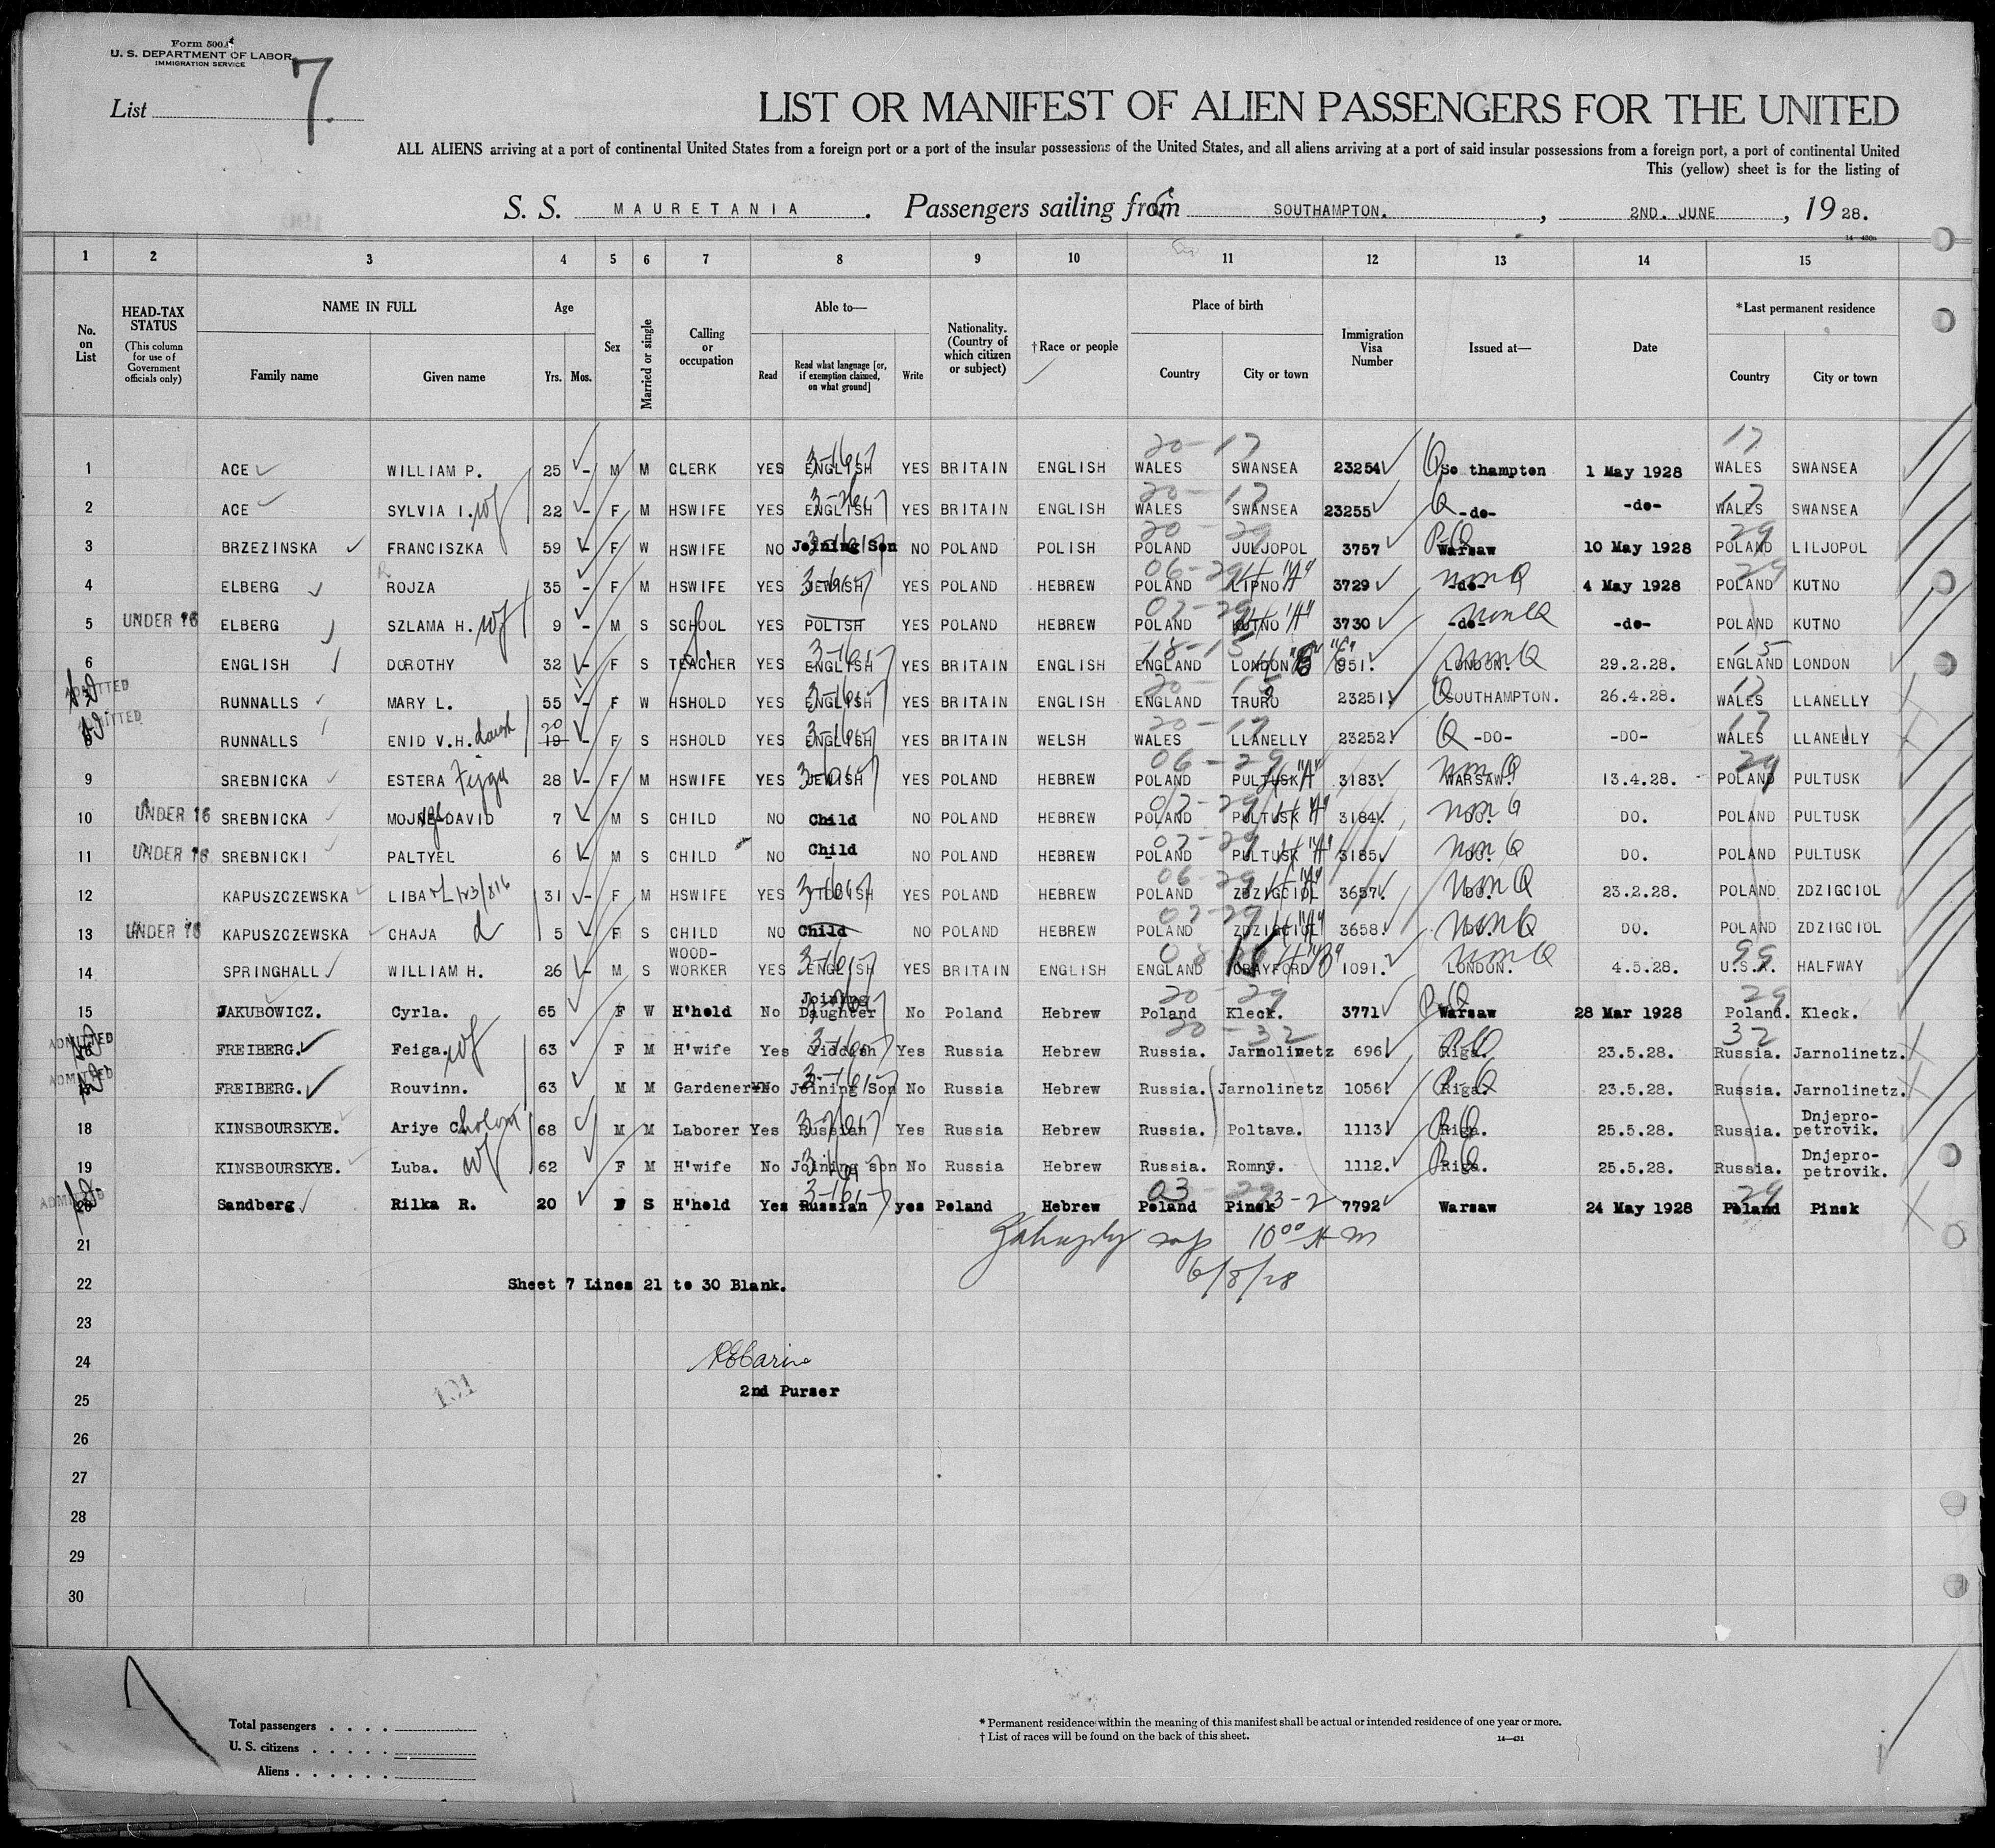 Form 500
U. S. DEPARTMENT OF LABOR
IMMIGRATION SERVICE
List 7.
LIST OR MANIFEST OF ALIEN PASSENGERS FOR THE UNITED
ALL ALIENS arriving at a port of continental United States from a foreign port or a port of the insular possessions of the United States, and all aliens arriving at a port of said insular possessions from a foreign port, a port of continental United
This (yellow) sheet is for the listing of
S. S. MAURETANIA. Passengers sailing from SOUTHAMPTON., 2ND. JUNE, 1928.
1 2 3 4 5 6 7 8 9 10 11 12 13 14 15
No. on List
HEAD-TAX STATUS (This column for use of Government officials only)
NAME IN FULL Family name Given name
Age Yrs. Mos.
Sex
Married or single
Calling or occupation
Able to— Read Read what language [or, if exemption claimed, on what ground] Write
Nationality. (Country of which citizen or subject)
†Race or people
Place of birth Country City or town
Immigration Visa Number
Issued at—
Date
*Last permanent residence Country City or town
20-17 17
1 ACE WILLIAM P. 25 - M M CLERK YES ENGLISH YES BRITAIN ENGLISH WALES SWANSEA 23254 Q So thampton 1 May 1928 WALES SWANSEA
20-17 17
2 ACE SYLVIA I. wf 22 - F M HSWIFE YES ENGLISH YES BRITAIN ENGLISH WALES SWANSEA 23255 Q -do- -do- WALES SWANSEA
20-29 29
3 BRZEZINSKA FRANCISZKA 59 - F W HSWIFE NO Joining Son NO POLAND POLISH POLAND JULJOPOL 3757 PQ Warsaw 10 May 1928 POLAND LILJOPOL
06-29 29
4 ELBERG ROJZA 35 - F M HSWIFE YES JEWISH YES POLAND HEBREW POLAND LIPNO 3729 non Q -do- 4 May 1928 POLAND KUTNO
5 UNDER 16 ELBERG SZLAMA H. 9 - M S SCHOOL YES POLISH YES POLAND HEBREW POLAND KUTNO 3730 non Q -do- -do- POLAND KUTNO
18-15 15
6 ENGLISH DOROTHY 32 - F S TEACHER YES ENGLISH YES BRITAIN ENGLISH ENGLAND LONDON 951. non Q LONDON. 29.2.28. ENGLAND LONDON
20-15 17
ADMITTED RUNNALLS MARY L. 55 - F W HSHOLD YES ENGLISH YES BRITAIN ENGLISH ENGLAND TRURO 23251 Q SOUTHAMPTON. 26.4.28. WALES LLANELLY
20-17 17
ADMITTED 8 RUNNALLS ENID V.H. daugh 20 19 - F S HSHOLD YES ENGLISH YES BRITAIN WELSH WALES LLANELLY 23252. Q -DO- -DO- WALES LLANELLY
06-29 29
9 SREBNICKA ESTERA Fejga 28 - F M HSWIFE YES JEWISH YES POLAND HEBREW POLAND PULTUSK 3183. non Q WARSAW. 13.4.28. POLAND PULTUSK
07-29
10 UNDER 16 SREBNICKA DAVID 7 - M S CHILD NO Child NO POLAND HEBREW POLAND PULTUSK 3184. non Q DO. DO. POLAND PULTUSK
07-29
11 UNDER 16 SREBNICKI PALTYEL 6 - M S CHILD NO Child NO POLAND HEBREW POLAND PULTUSK 3185. non Q DO. DO. POLAND PULTUSK
06-29
12 KAPUSZCZEWSKA LIBA 31 - F M HSWIFE YES YES POLAND HEBREW POLAND ZDZIGCIOL 3657. non Q DO. 23.2.28. POLAND ZDZIGCIOL
07-29
13 UNDER 16 KAPUSZCZEWSKA CHAJA d 5 - F S CHILD NO Child NO POLAND HEBREW POLAND ZDZIGCIOL 3658. non Q DO. DO. POLAND ZDZIGCIOL
99
14 SPRINGHALL WILLIAM H. 26 - M S WOOD-WORKER YES ENGLISH YES BRITAIN ENGLISH ENGLAND CRAYFORD 1091. non Q LONDON. 4.5.28. U.S.A. HALFWAY
20-29 29
15 JAKUBOWICZ. Cyrla. 65 F W H'hold No Joining Daughter No Poland Hebrew Poland Kleck. 3771 PQ Warsaw 28 Mar 1928 Poland. Kleck.
20-32 32
ADMITTED FREIBERG. Feiga. wf 63 F M H'wife Yes Yiddish Yes Russia Hebrew Russia. Jarnolinetz 696. PQ Riga. 23.5.28. Russia. Jarnolinetz.
ADMITTED FREIBERG. Rouvinn. 63 M M Gardener No Joining Son No Russia Hebrew Russia. Jarnolinetz 1056. PQ Riga. 23.5.28. Russia. Jarnolinetz.
18 KINSBOURSKYE. Ariye 68 M M Laborer Yes Russian Yes Russia Hebrew Russia. Poltava. 1113. PQ Riga. 25.5.28. Russia. Dnjepro-petrovik.
19 KINSBOURSKYE. Luba. wf 62 F M H'wife No Joining son No Russia Hebrew Russia. Romny. 1112. PQ Riga. 25.5.28. Russia. Dnjepro-petrovik.
03-29 29
ADMITTED 20 Sandberg Rilka R. 20 F S H'hold Yes Russian yes Poland Hebrew Poland Pinsk 3-2 7792 Warsaw 24 May 1928 Poland Pinsk
21 10 00 AM
22 Sheet 7 Lines 21 to 30 Blank. 6/8/28
23
24
25 2nd Purser
101
26
27
28
29
30
Total passengers . . . .
U. S. citizens . . . . .
Aliens . . . . . .
* Permanent residence within the meaning of this manifest shall be actual or intended residence of one year or more.
† List of races will be found on the back of this sheet.
14—431